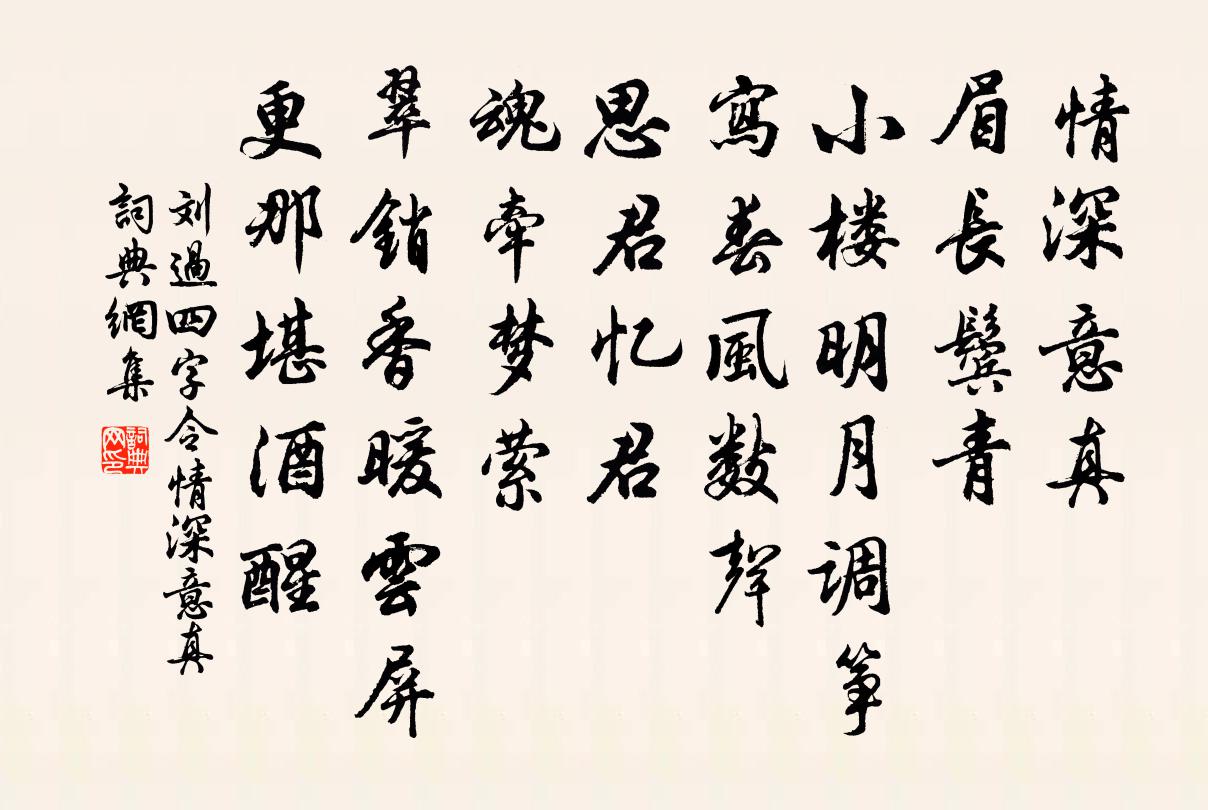 情深意真
眉長鬓青
小楼明月调筝
寫春風数聲
思君忆君
魂牵梦萦
翠銷香暖雲屏
更那堪酒醒
刘過四字令情深意真
詞典網集
詞典
网印